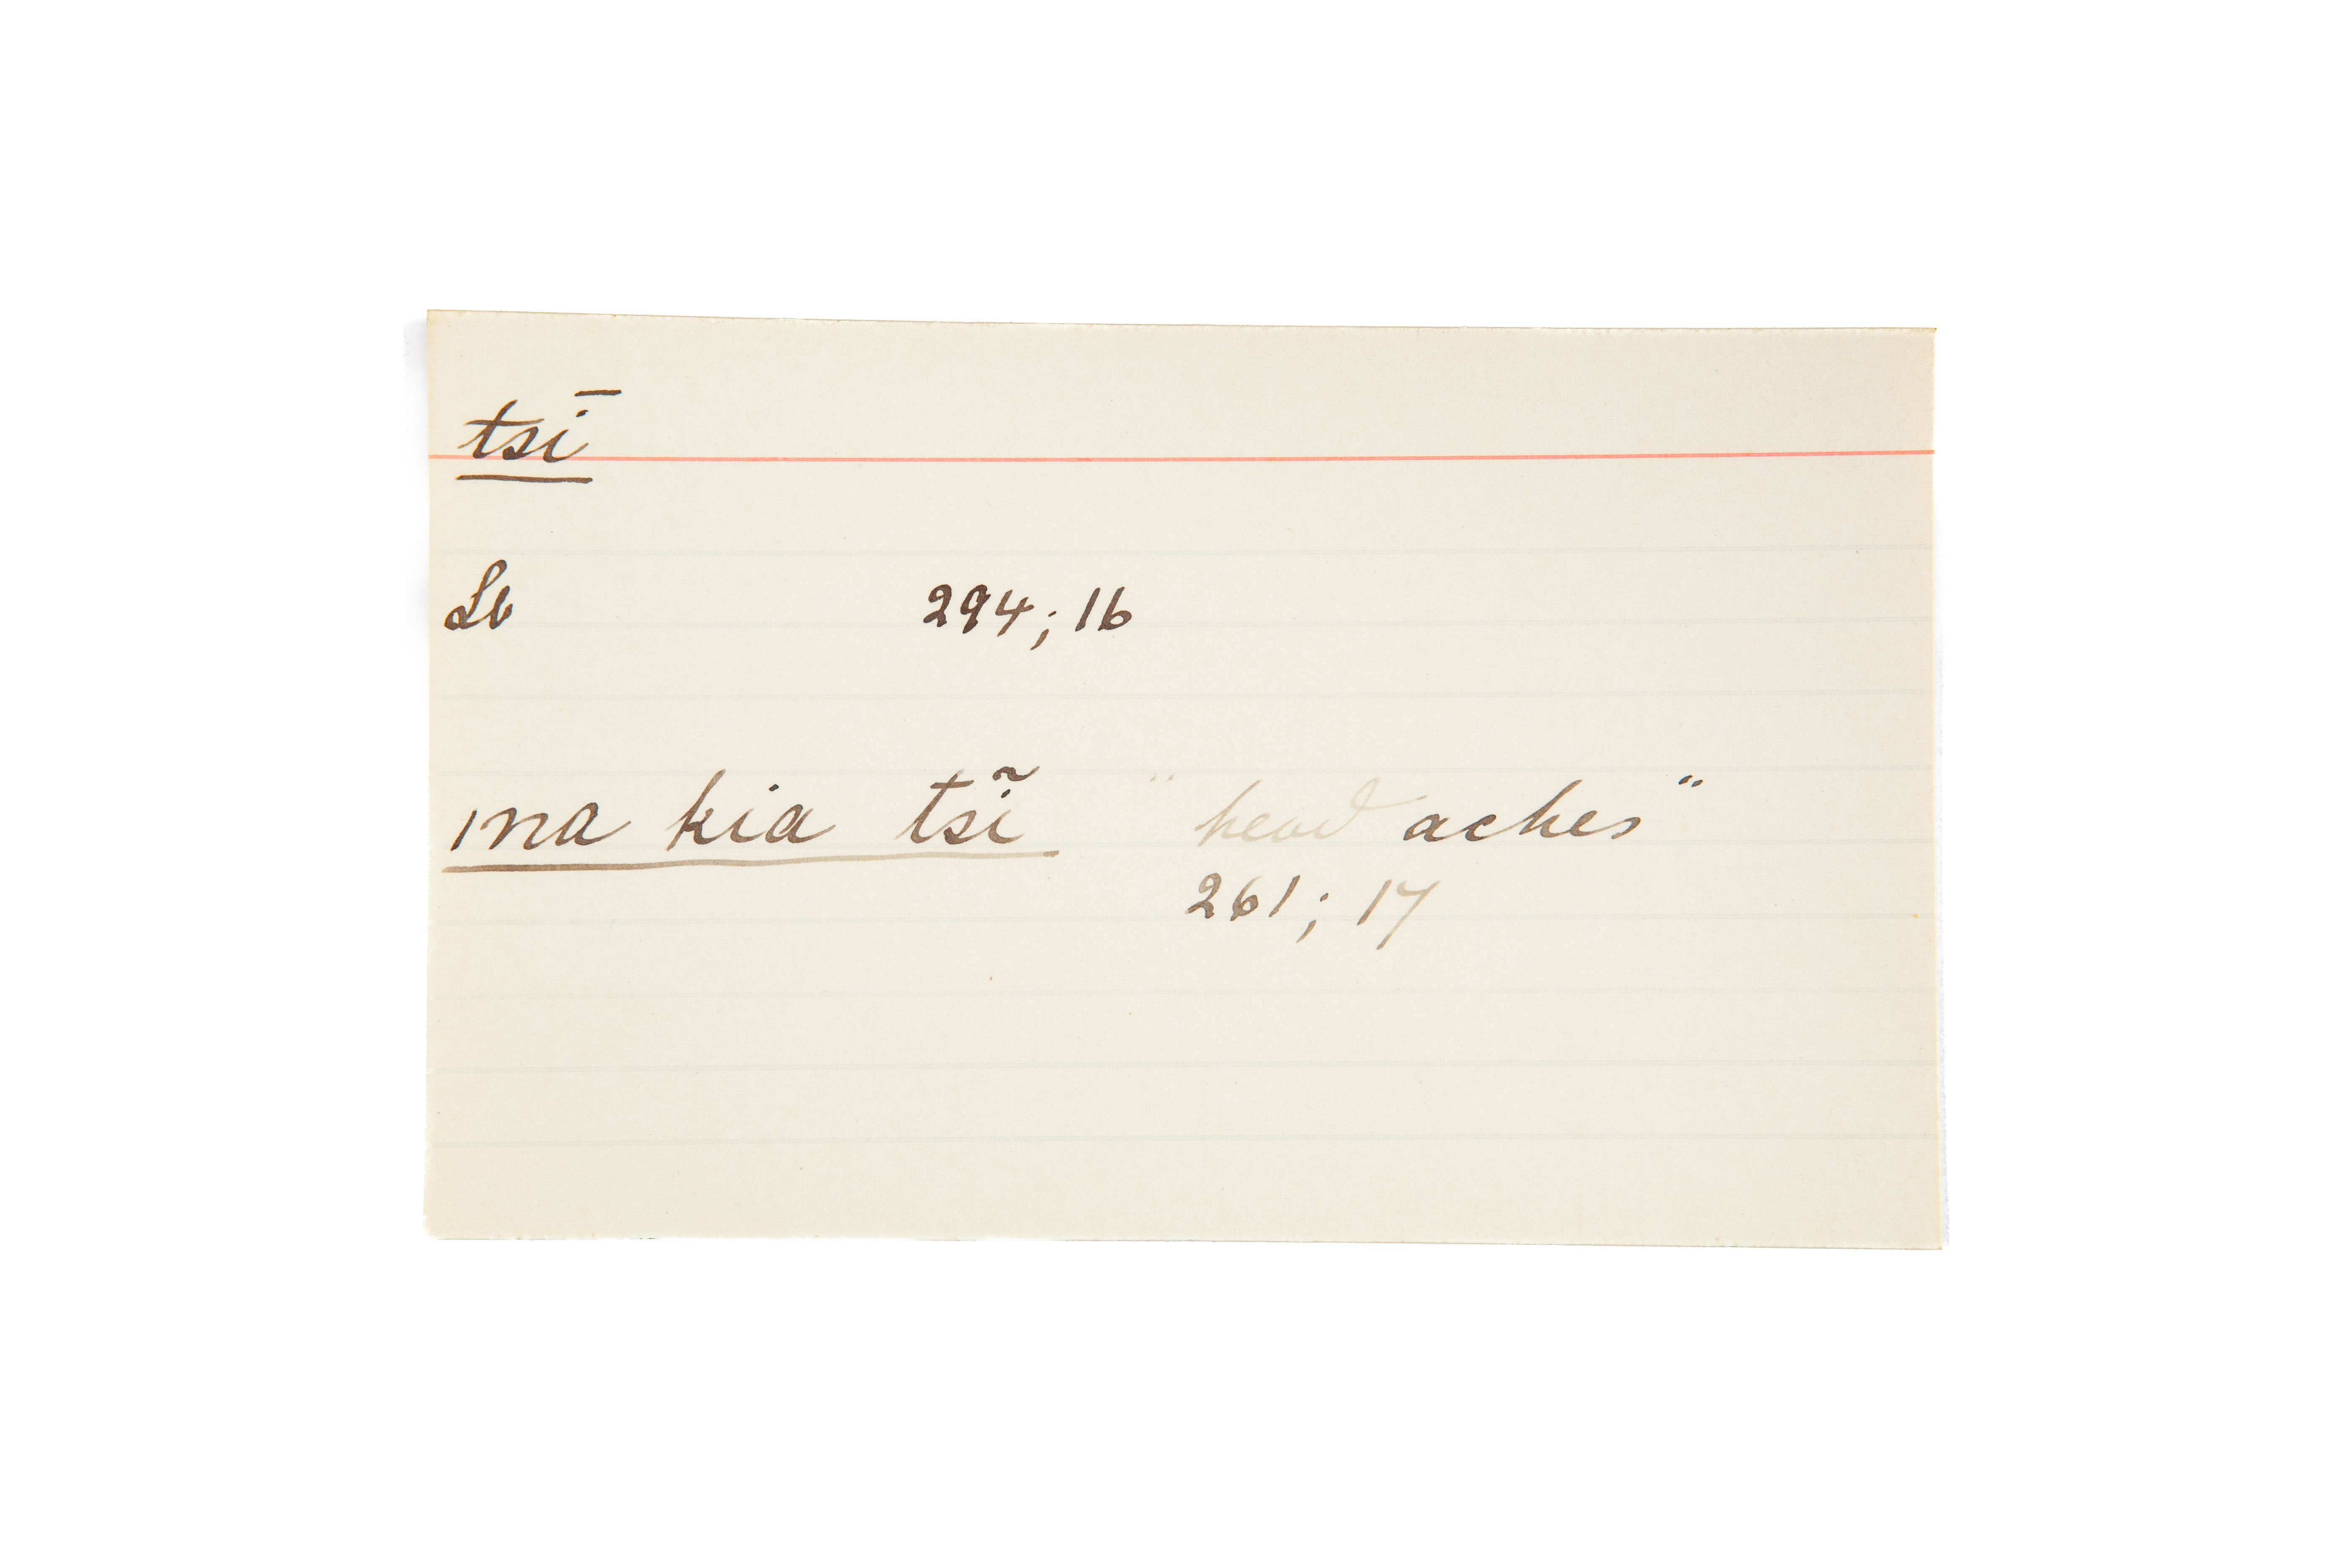 tsī
Lo 294; 16
ına kia tsĩ "head aches"
261; 17